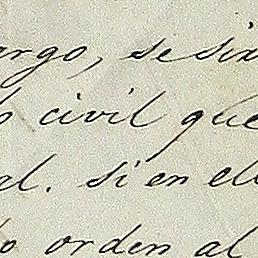 argo, se six
o civil que
al. Si en ell
o orden al